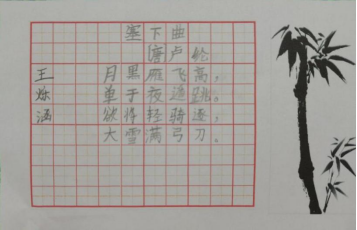 塞下曲
唐卢纶
月黑雁飞高，
单于夜遁逃。
欲将轻骑逐，
大雪满弓刀。
王烁涵